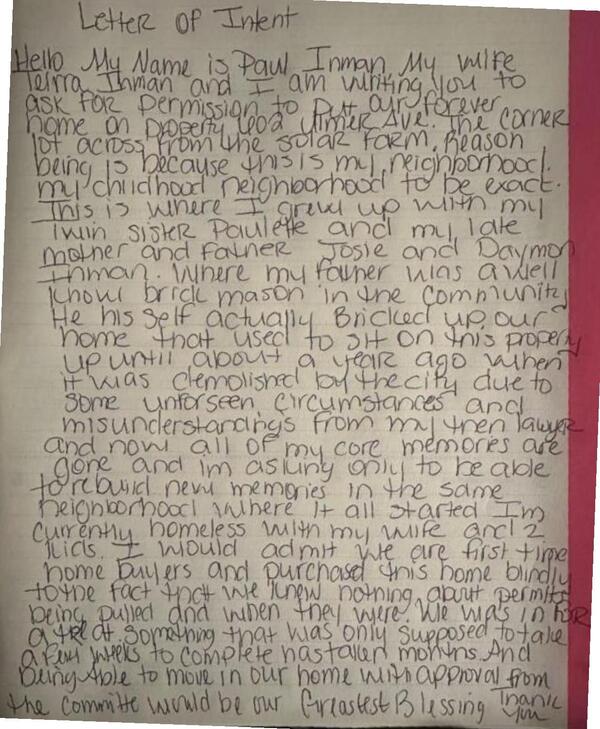 Letter of Intent
Hello My Name is Paul Inman My wife
Teirra Inman and I am writing you to
ask for permission to putt our forever
home on property 1602 Ulmer Ave. The corner
lot across from the solar farm. Reason
being is because this is my neighborhood.
my childhood neighborhood to be exact.
This is where I grew up with my
Twin sister Paulette and my late
mother and father Josie and Daymon
Inman. Where my father was a well
known brick mason in the community
He his self actually Bricked up our
home that used to sit on this property
up until about a year ago when
it was demolished by the city due to
some unforseen circumstances and
misunderstandings from my then lawyer
and now all of my core memories are
gone and im asking only to be able
to rebuild new memories in the same
neighborhood where it all started I'm
currently homeless with my wife and 2
kids. I would admit we are first time
home buyers and purchased this home blindly
to the fact that we knew nothing about permits
being pulled and when they were. We was in for
a treat. Something that was only supposed to take
a few weeks to complete has taken months. And
Being Able to move in our home with approval from
the committe would be our Greastest Blessing Thank
You